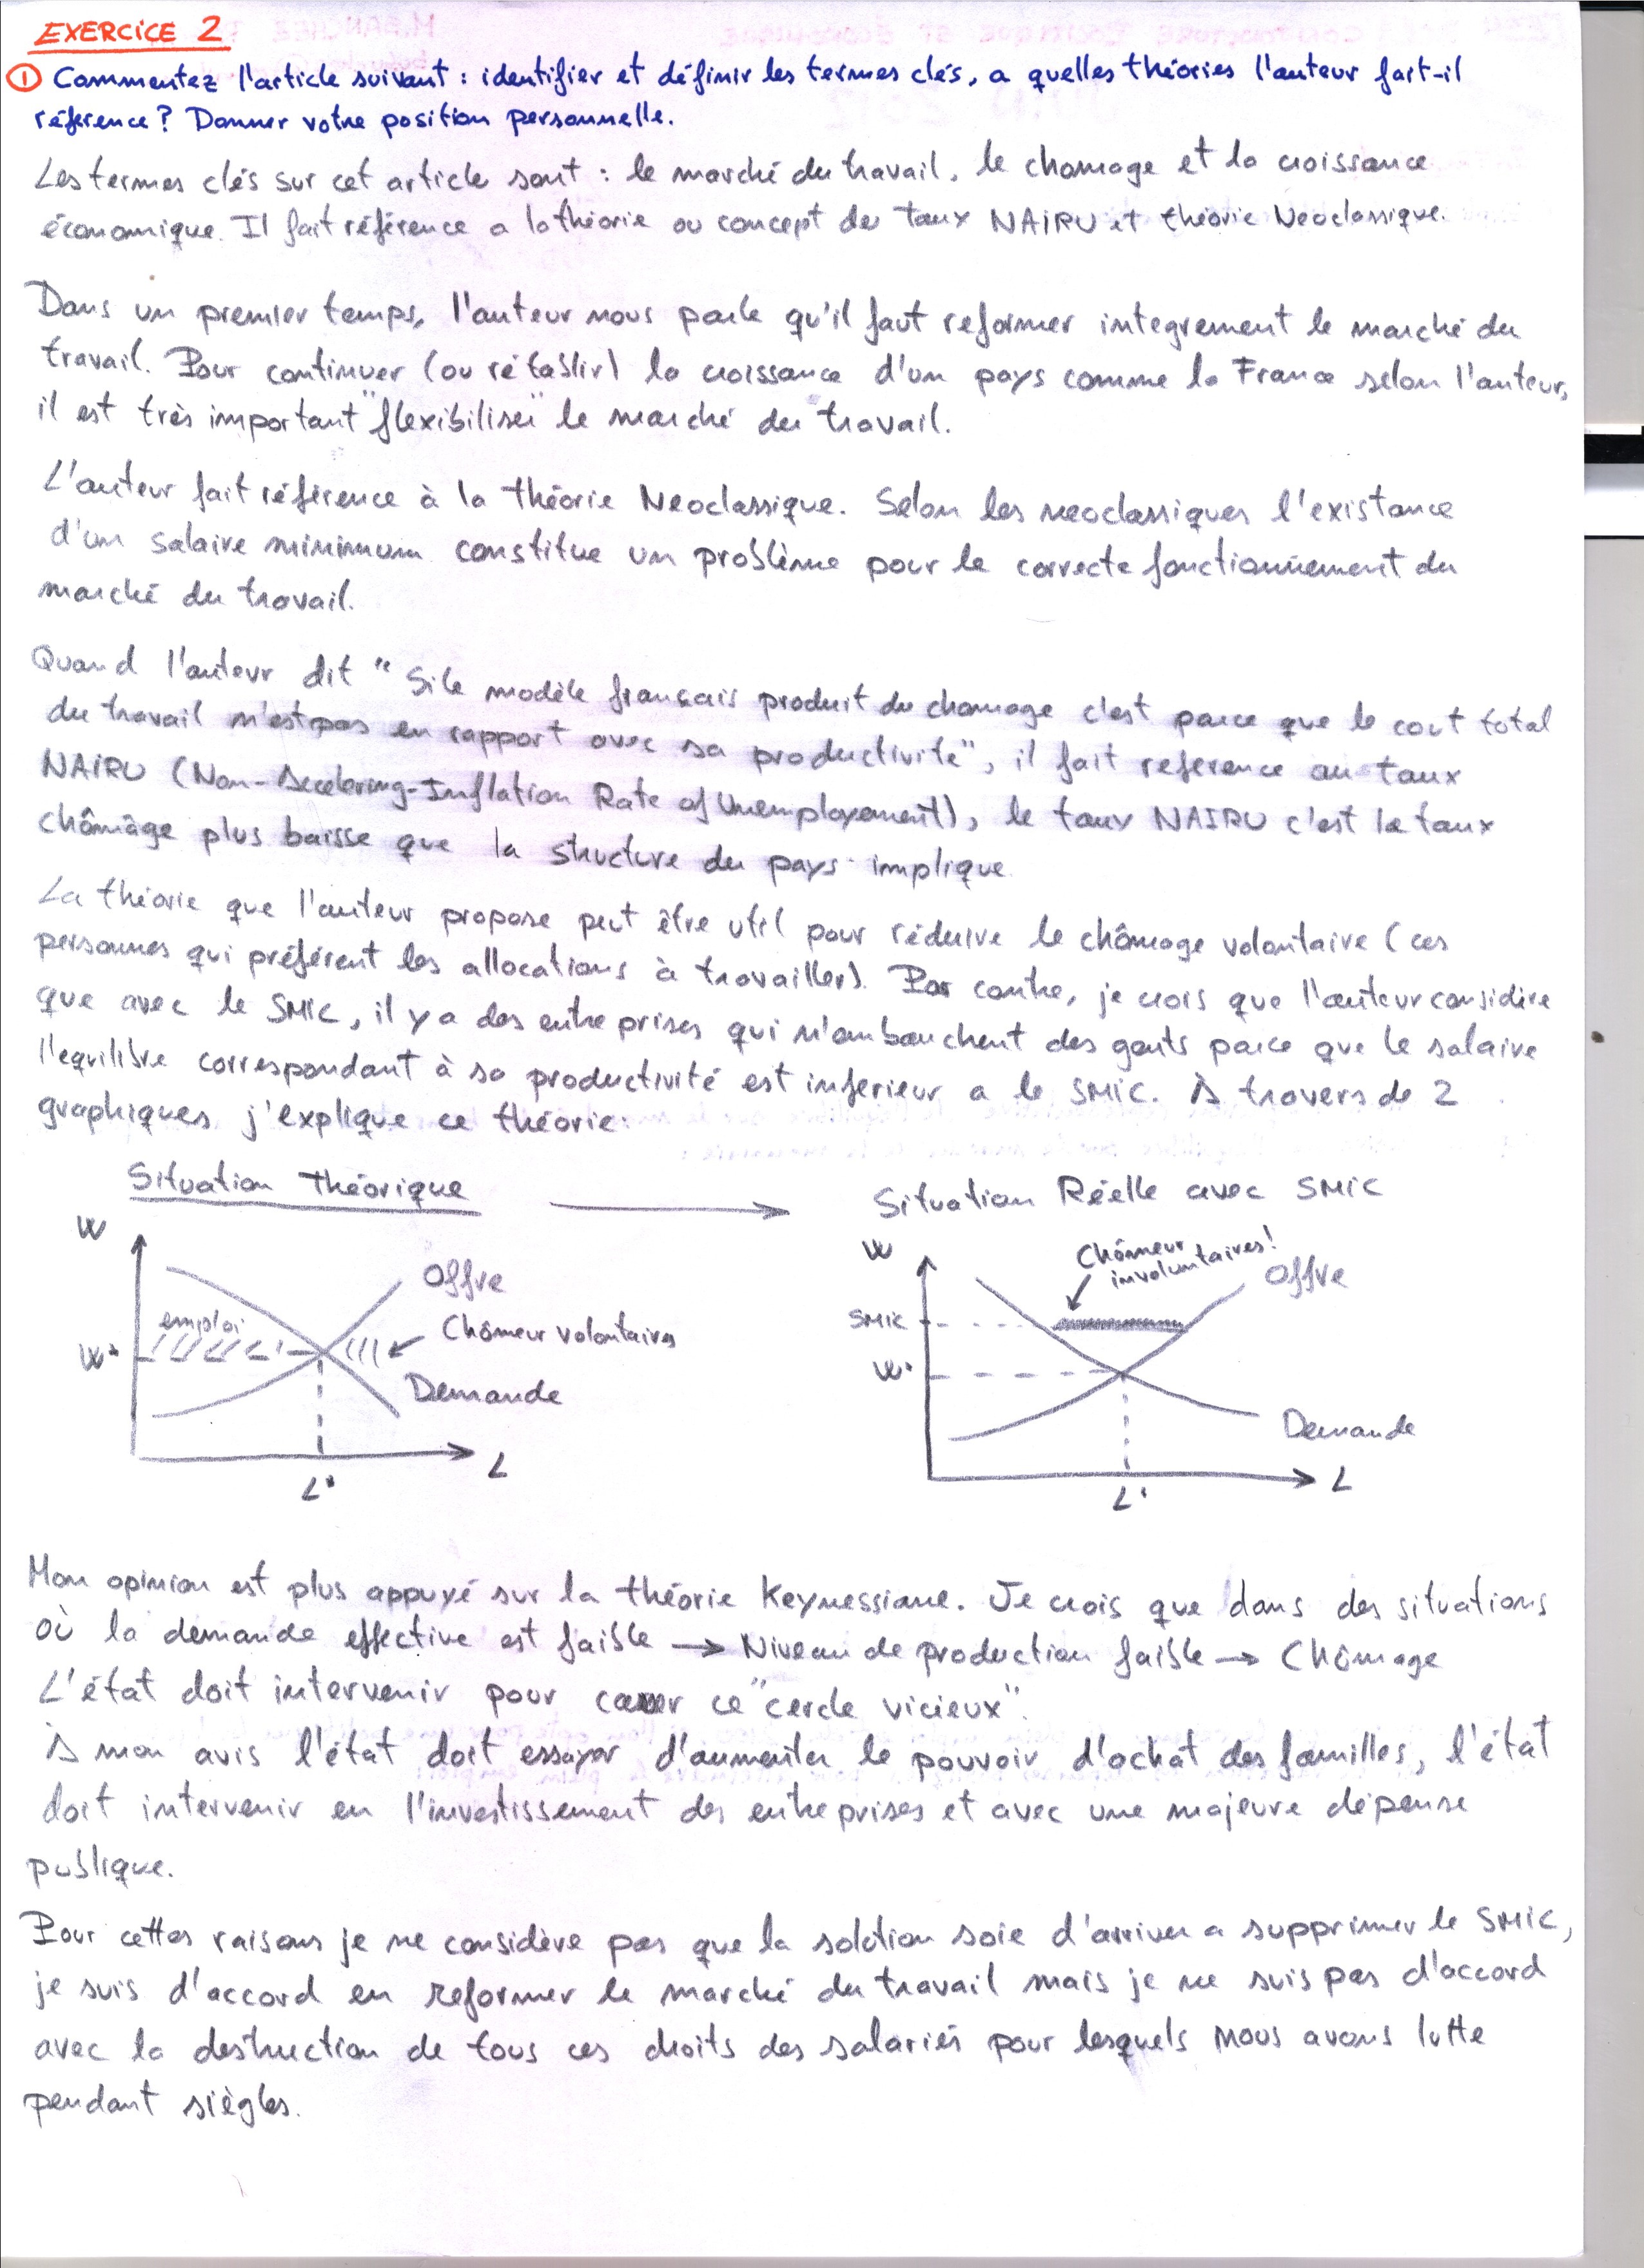 EXERCICE 2
① Commentez l'article suivant : identifier et définir les termes clés, a quelles théories l'auteur fait-il
référence? Donner votre position personnelle.
Les termes clés sur cet article sont : le marché du travail, le chomage et la croissance
économique. Il fait référence a la théorie ou concept du taux NAIRU et théorie Neoclassique.
Dans un premier temps, l'auteur nous parle qu'il faut reformer integrement le marché du
travail. Pour continuer (ou rétablir) la croissance d'un pays comme la France selon l'auteur,
il est très important "flexibiliser" le marché du travail.
L'auteur fait référence à la théorie Neoclassique. Selon les neoclassiques l'existance
d'un salaire minimum constitue un problème pour le correcte fonctionnement du
marché du travail.
Quand l'auteur dit "Si le modèle français produit du chomage c'est parce que le cout total
du travail n'est pas en rapport avec sa productivité", il fait reference au taux
NAIRU (Non-Accelering-Inflation Rate of Unemployement), le taux NAIRU c'est le taux
chômâge plus baisse que la structure du pays implique
La théorie que l'auteur propose peut être util pour réduire le chômage volontaire (ces
personnes qui préférent les allocations à travailler). Par contre, je crois que l'auteur considère
que avec le SMIC, il y a des entreprises qui n'embauchent des gents parce que le salaire
l'equilibre correspondant à sa productivité est inferieur a le SMIC. À travers de 2
graphiques j'explique ce théorie:
Situation Théorique
Situation Réelle avec SMIC
W
Offre
emploi
Chômeur volontaires
W*
Demande
L
L*
W
Chômeur
involontaires!
Offre
SMIC
W*
Demande
L
L*
Mon opinion est plus appuyé sur la théorie Keynessiane. Je crois que dans des situations
où la demande effective est faible → Niveau de production faible → Chômage
L'état doit intervenir pour casser ce "cercle vicieux".
À mon avis l'état doit essayer d'aumenter le pouvoir d'achat des familles, l'état
doit intervenir en l'investissement des entreprises et avec une majeure dépense
publique.
Pour cettes raisons je ne considère pas que la solution soie d'arriver a supprimer le SMIC,
je suis d'accord en reformer le marché du travail mais je ne suis pas d'accord
avec la destruction de tous ces droits des salariés pour lesquels nous avons lutte
pendant siègles.